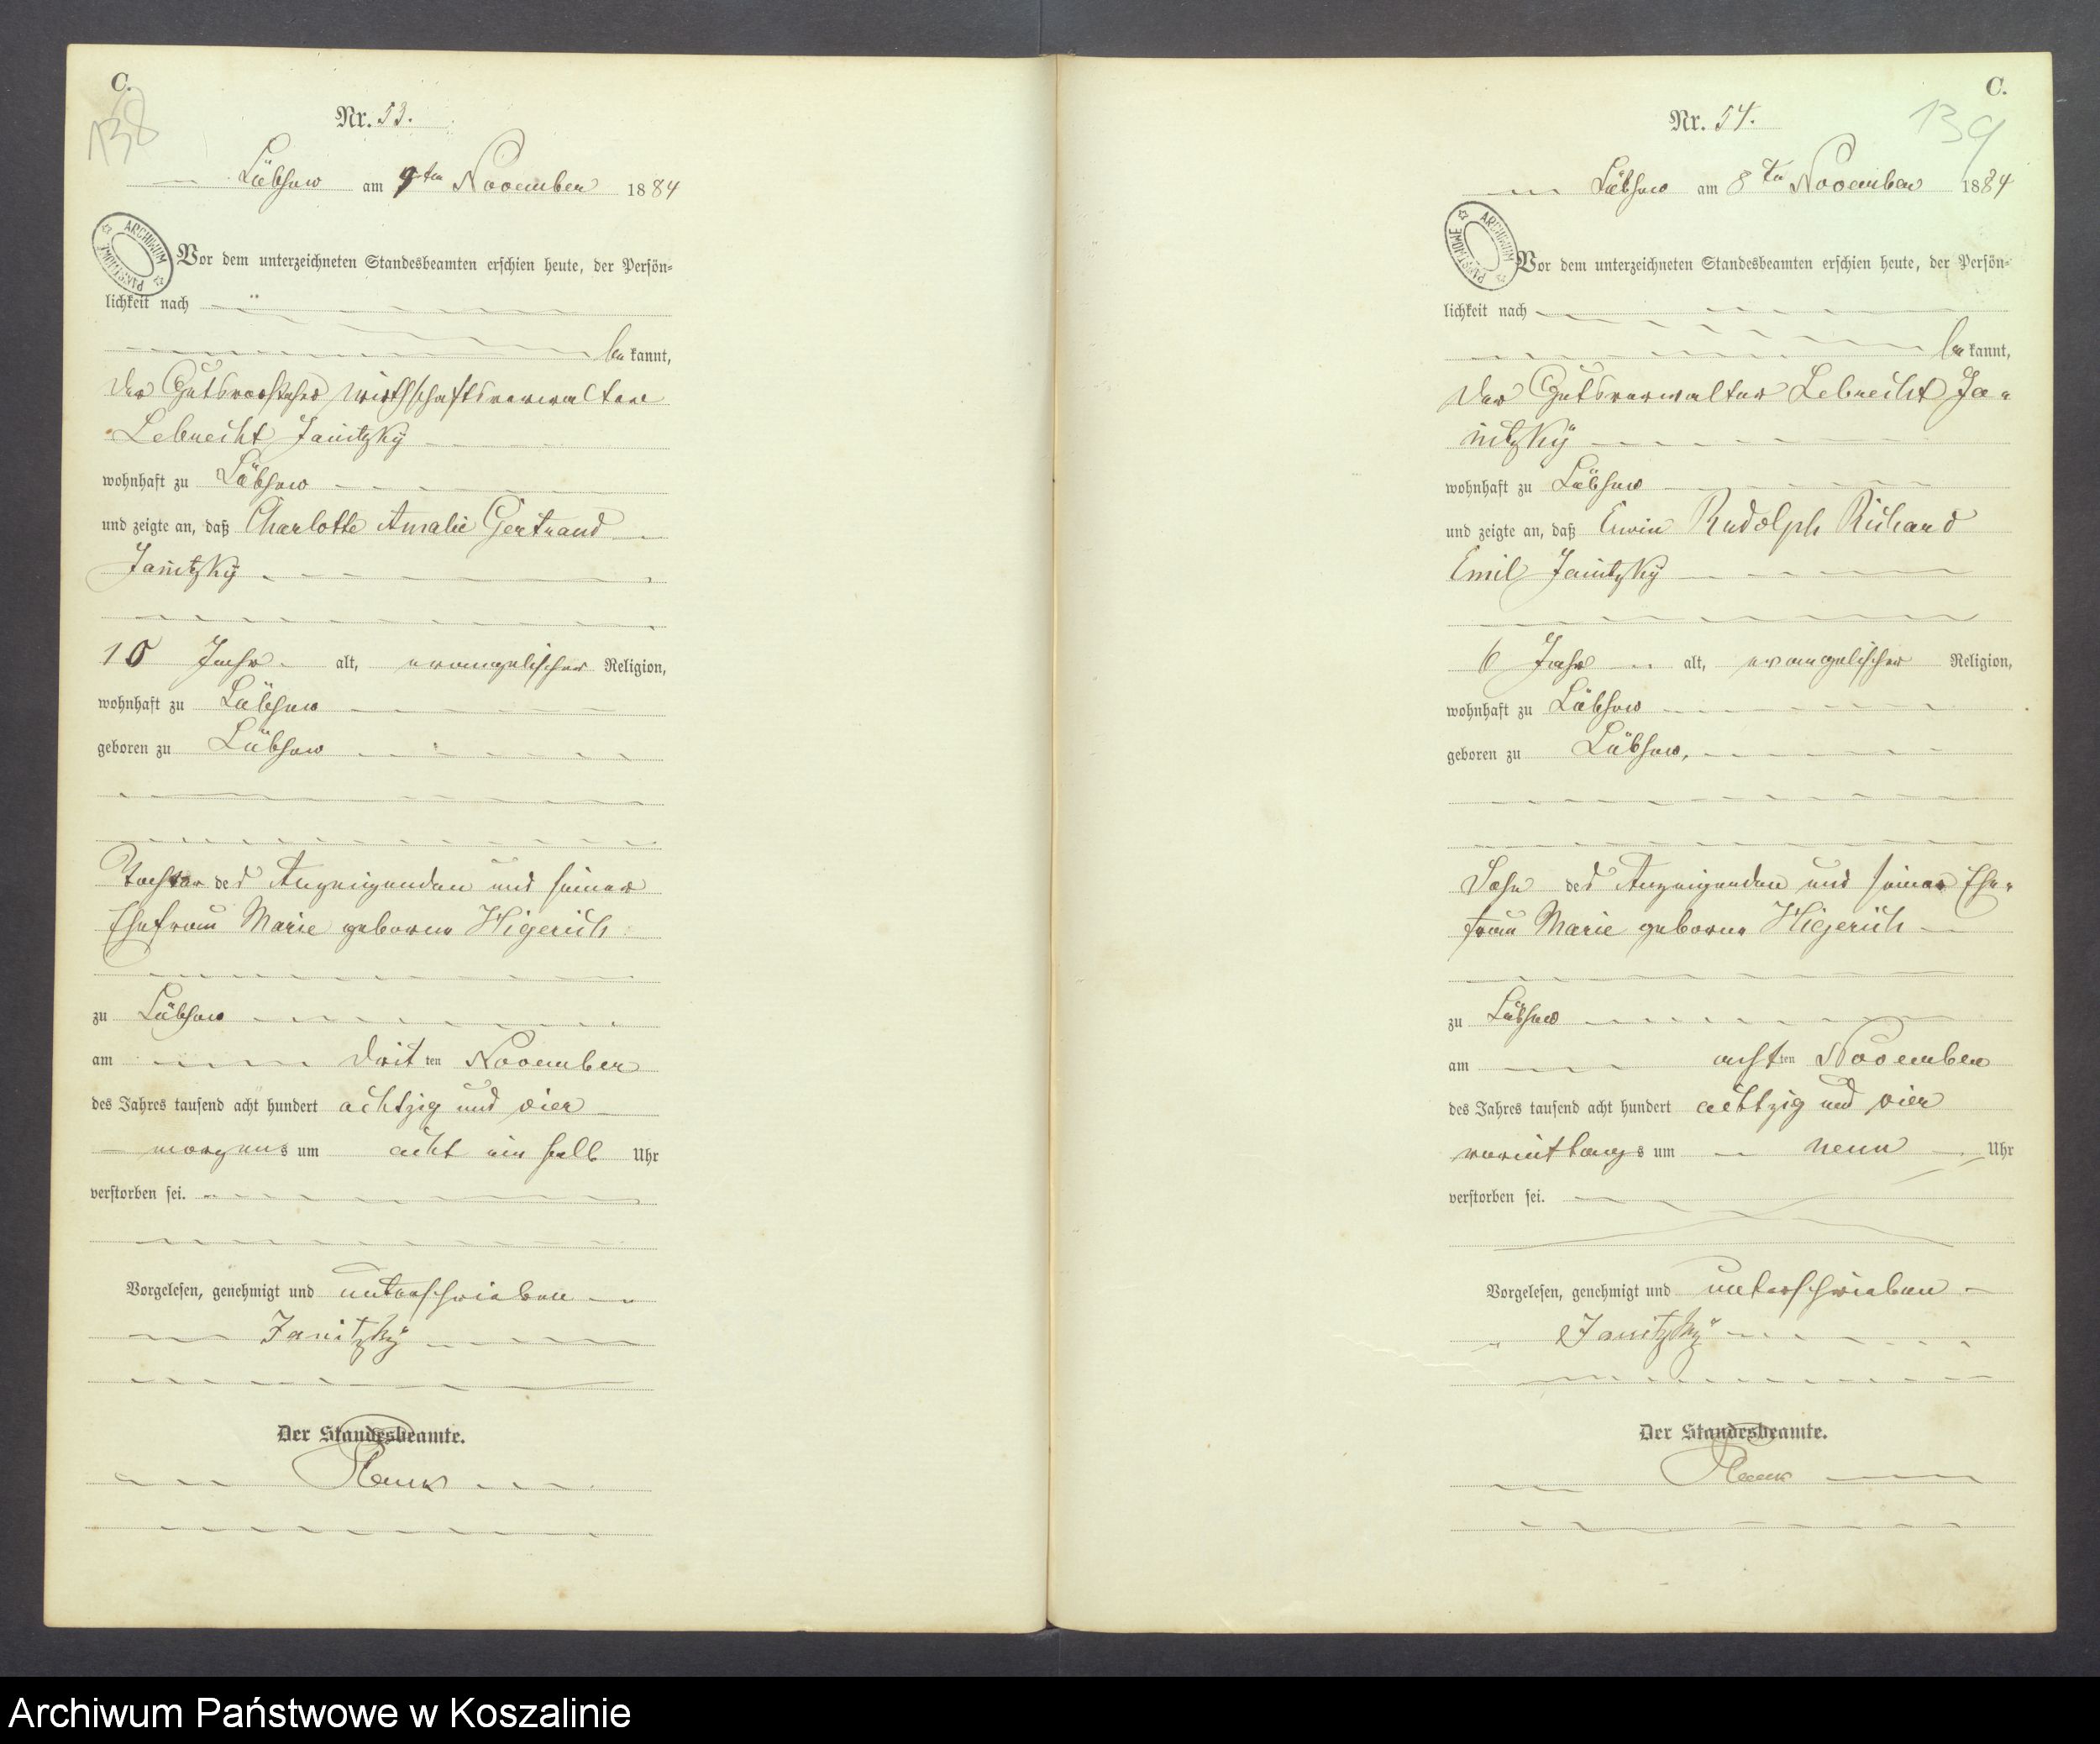 C.
138
Nr. 53.
Lübsow am 9ten November 1884
ARCHIWUM PAŃSTWOWE
Vor dem unterzeichneten Standesbeamten erschien heute, der Persön=
lichkeit nach
be kannt,
der Gutsvorsteher Wirthschaftsverwalter
Lebrecht Janitzky
wohnhaft zu Lübsow
und zeigte an, daß Charlotte Amalie Gertraud
Janitzky
10 Jahr alt, evangelischer Religion,
wohnhaft zu Lübsow
geboren zu Lübsow
Tochter des Anzeigenden und seiner
Ehefrau Marie geborne Higerich
zu Lübsow
am dritten November
des Jahres tausend acht hundert achtzig und vier
morgens um acht ein halb Uhr
verstorben sei.
Vorgelesen, genehmigt und unterschrieben
Janitzky
Der Standesbeamte.
C.
139
Nr. 54.
Lübsow am 8ten November 1884
ARCHIWUM PAŃSTWOWE
Vor dem unterzeichneten Standesbeamten erschien heute, der Persön=
lichkeit nach
be kannt,
der Gutsverwalter Lebrecht Ja=
nitzky
wohnhaft zu Lübsow
und zeigte an, daß Erwin Rudolph Richard
Emil Janitzky
6 Jahr alt, evangelischer Religion,
wohnhaft zu Lübsow
geboren zu Lübsow,
Sohn des Anzeigenden und seiner Ehe=
frau Marie geborne Higerich
zu Lübsow
am achten November
des Jahres tausend acht hundert achtzig und vier
vormittags um neun Uhr
verstorben sei.
Vorgelesen, genehmigt und unterschrieben
Janitzky
Der Standesbeamte.
Archiwum Państwowe w Koszalinie